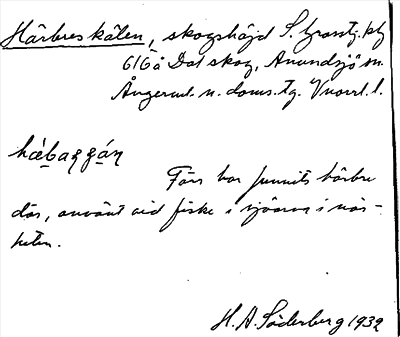 Härbreskälen, skogshöjd S. Grantj. kbl
616å Dal skog, Anundsjö sn.
Ångerml. n. doms. tg. Vnorrl. l.
hæ̀baʂʂáɳ
Förr har funnits härbre
där, använt vid fiske i sjöarna i när-
heten.
H. A. Söderberg 1932